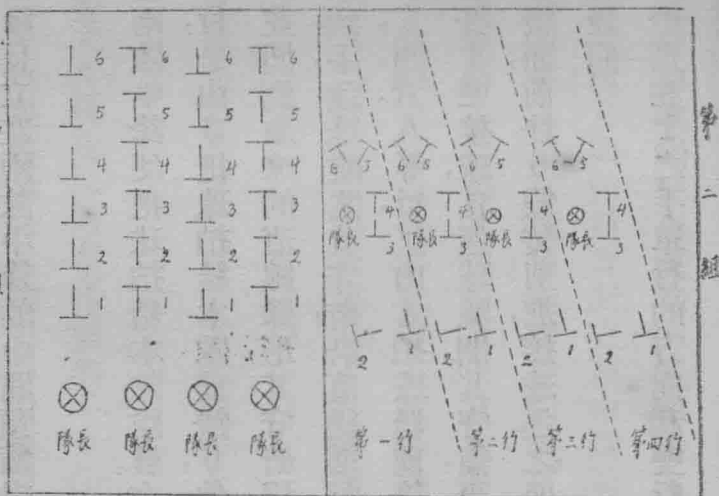 第二組
6 6 6 6
5 5 5 5
4 4 4 4
3 3 3 3
2 2 2 2
1 1 1 1
隊長 隊長 隊長 隊長
6 5 6 5 6 5 6 5
4 4 4 4
隊長 隊長 隊長 隊長
3 3 3 3
2 1 2 1 2 1 2 1
第一行 第二行 第三行 第四行